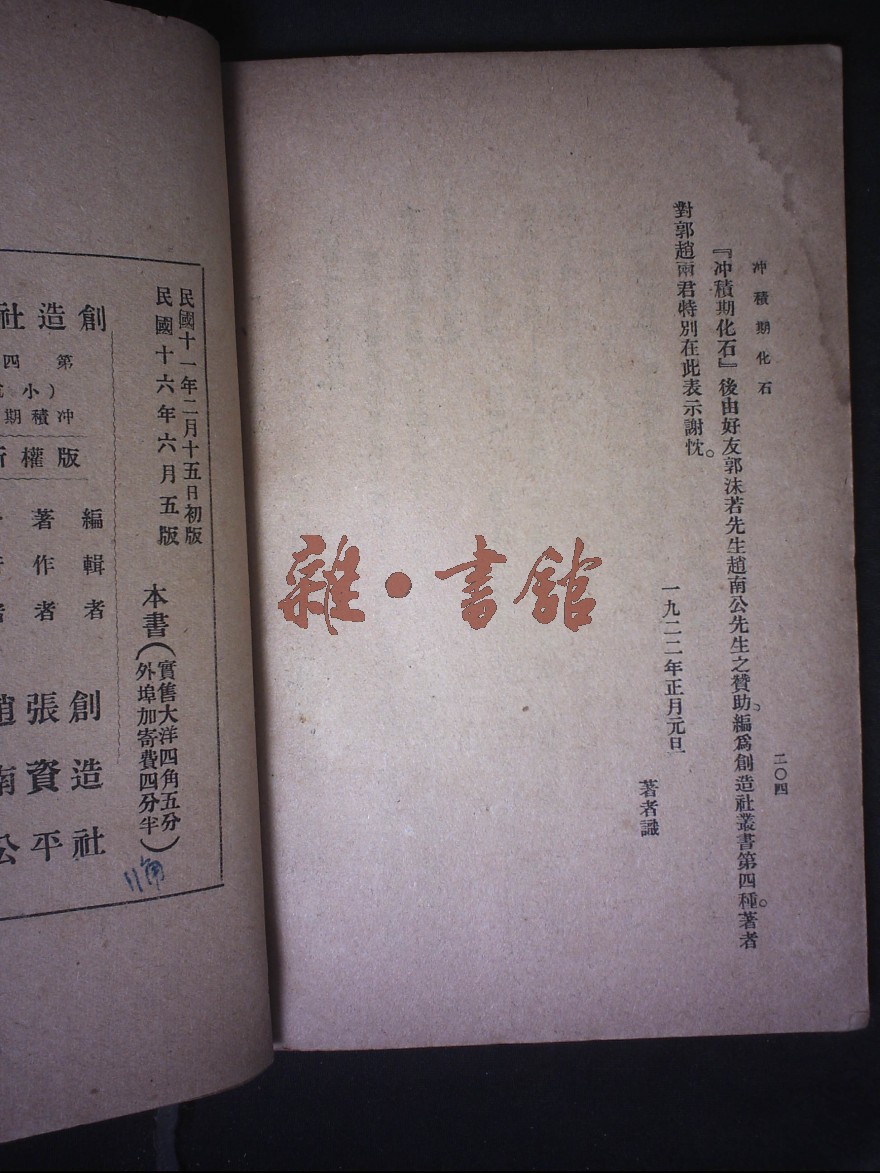 冲積期化石
二〇四
『冲積期化石』後由好友郭沫若先生趙南公先生之贊助。編爲創造社叢書第四種。著者
對郭趙兩君特別在此表示謝忱。
一九二二年正月元旦
著者識
民國十一年二月十五日初版
民國十六年六月五版
本書（實售大洋四角五分
外埠加寄費四分半）
創造社
第四
（小
冲積期
版權所
編輯者 創造社
著作者 張資平
者 趙南公
雜·書館